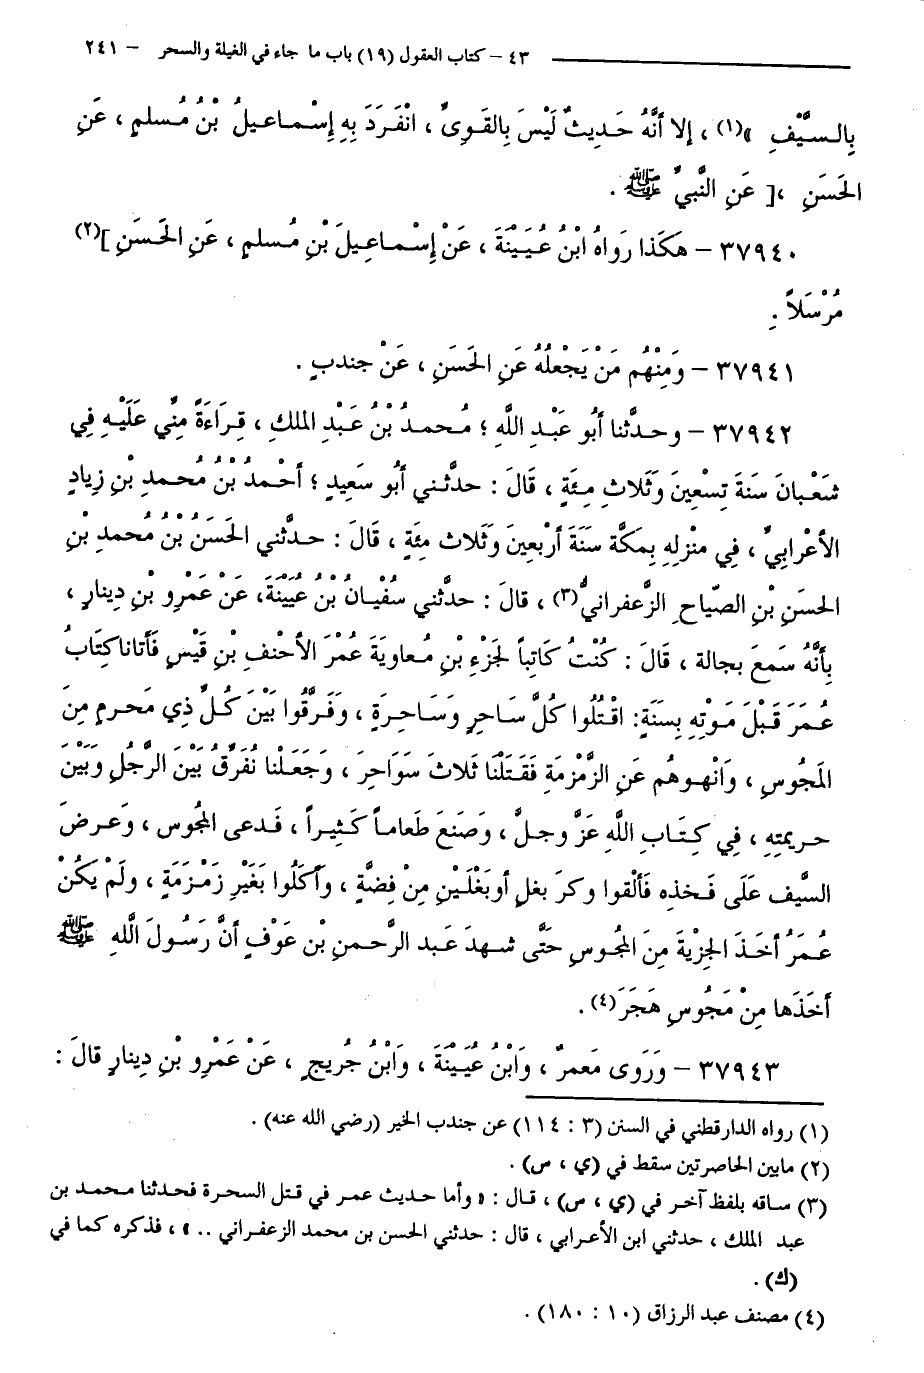 ٤٣ – كتاب العقول (١٩) باب ما جاء في الغيلة والسحر – ٢٤١
بِالسَّيْفِ »(١) ، إلا أنَّهُ حَدِيثٌ لَيْسَ بِالقَوِيِّ ، انْفَرَدَ بِهِ إِسْماعِيلُ بْنُ مُسلمٍ ، عَنِ
الحَسَنِ ،[ عَنِ النَّبِيِّ ﷺ .
٣٧٩٤٠ – هكَذا رَواهُ ابْنُ عُيَيْنَةَ ، عَنْ إِسْماعِيلَ بْنِ مُسلمٍ ، عَنِ الحَسَنِ ](٢)
مُرْسَلاً .
٣٧٩٤١ – وَمِنْهُم مَنْ يَجْعلُهُ عَنِ الحَسَنِ ، عَنْ جندبٍ .
٣٧٩٤٢ – وحدَّثنا أَبُو عَبْدِ اللَّهِ ؛ مُحمدُ بْنُ عَبْدِ الملكِ ، قِرَاءَةً مِنِّي عَلَيْهِ فِي
شَعْبانَ سَنَةَ تِسْعِينَ وَثَلاثِ مِئَةٍ ، قَالَ : حدَّثني أَبُو سَعِيدٍ ؛ أَحْمدُ بْنُ مُحمدِ بْنِ زِيادٍ
الأَعْرابِيِّ ، فِي منْزِلِهِ بِمكَّةَ سَنَةَ أَرْبعِينَ وَثَلاث مِئَةٍ ، قَالَ : حدَّثني الحَسَنُ بْنُ مُحمدِ بْنِ
الحسَنِ بْنِ الصَّيَاحِ الزَّعفرانيُّ(٣) ، قالَ : حدَّثني سُفْيانُ بْنُ عُيَيْنَةَ، عَنْ عَمْرِو بْنِ دِينارٍ ،
بِأنَّهُ سَمعَ بجالة ، قَالَ : كُنْتُ كَاتِباً لجَزْءِ بْنِ مُعاوِيَةَ عُمْرَ الأَحْنفِ بْنِ قَيْسٍ فَأَتاناكِتَابُ
عُمَرَ قَبْلَ مَوْتِهِ بِسَنَةٍ: اقْتُلُوا كُلَّ سَاحِرٍ وَسَاحِرَةٍ ، وَفَرَّقُوا بَيْنَ كُلِّ ذِي مَحرمٍ مِنَ
المَجُوسِ ، وَانْهوهُم عَنِ الزَّمْزمَةِ فَقَتَلْنا ثَلاثَ سَواحِرَ ، وَجَعَلْنا نُفَرِّقُ بَيْنَ الرَّجُلِ وَبَيْنَ
حريمتِهِ ، فِي كِتَابِ اللَّهِ عَزَّ وجلَّ ، وَصَنعَ طَعاماً كَثِيراً ، فَدعى المجُوس ، وعَرضَ
السَّيفَ عَلَى فَخذِه فَأَلْقوا وكرَ بغلٍ أوبَغْلَيْنِ مِنْ فِضَّةٍ ، وأَكَلُوا بغَيْرِ زَمْزَمَةٍ ، ولَمْ يكُنْ
عُمَرُ أَخَذَ الجِزْيةَ مِنَ المجُوسِ حَتَّى شهدَ عَبد الرَّحمنِ بْن عَوْفٍ أنَّ رَسُولَ اللَّهِ ﷺ
أَخَذَها مِنْ مَجُوسِ هَجَرَ(٤) .
٣٧٩٤٣ – وَرَوى مَعمرٌ ، وَابْنُ عُيَيْنَةَ ، وَابْنُ جُريجٍ ، عَنْ عَمْرِو بْنِ دِينارٍ قالَ :
(١) رواه الدارقطني في السنن (٣ : ١١٤) عن جندب الخير (رضي الله عنه) .
(٢) مابين الحاصرتين سقط في (ي ، س) .
(٣) ساقه بلفظ آخر في (ي ، س) ، قال : « وأما حديث عمر في قتل السحرة فحدثنا محمد بن
عبد الملك ، حدثني ابن الأعرابي ، قال : حدثني الحسن بن محمد الزعفراني .. » ، فذكره كما في
(ك) .
(٤) مصنف عبد الرزاق (١٠ : ١٨٠) .